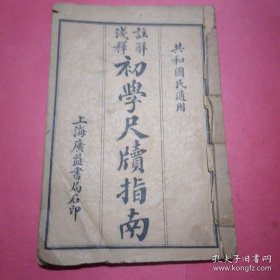 共和國民適用
註解
淺釋
初學尺牘指南
上海廣益書局石印
孔夫子旧书网